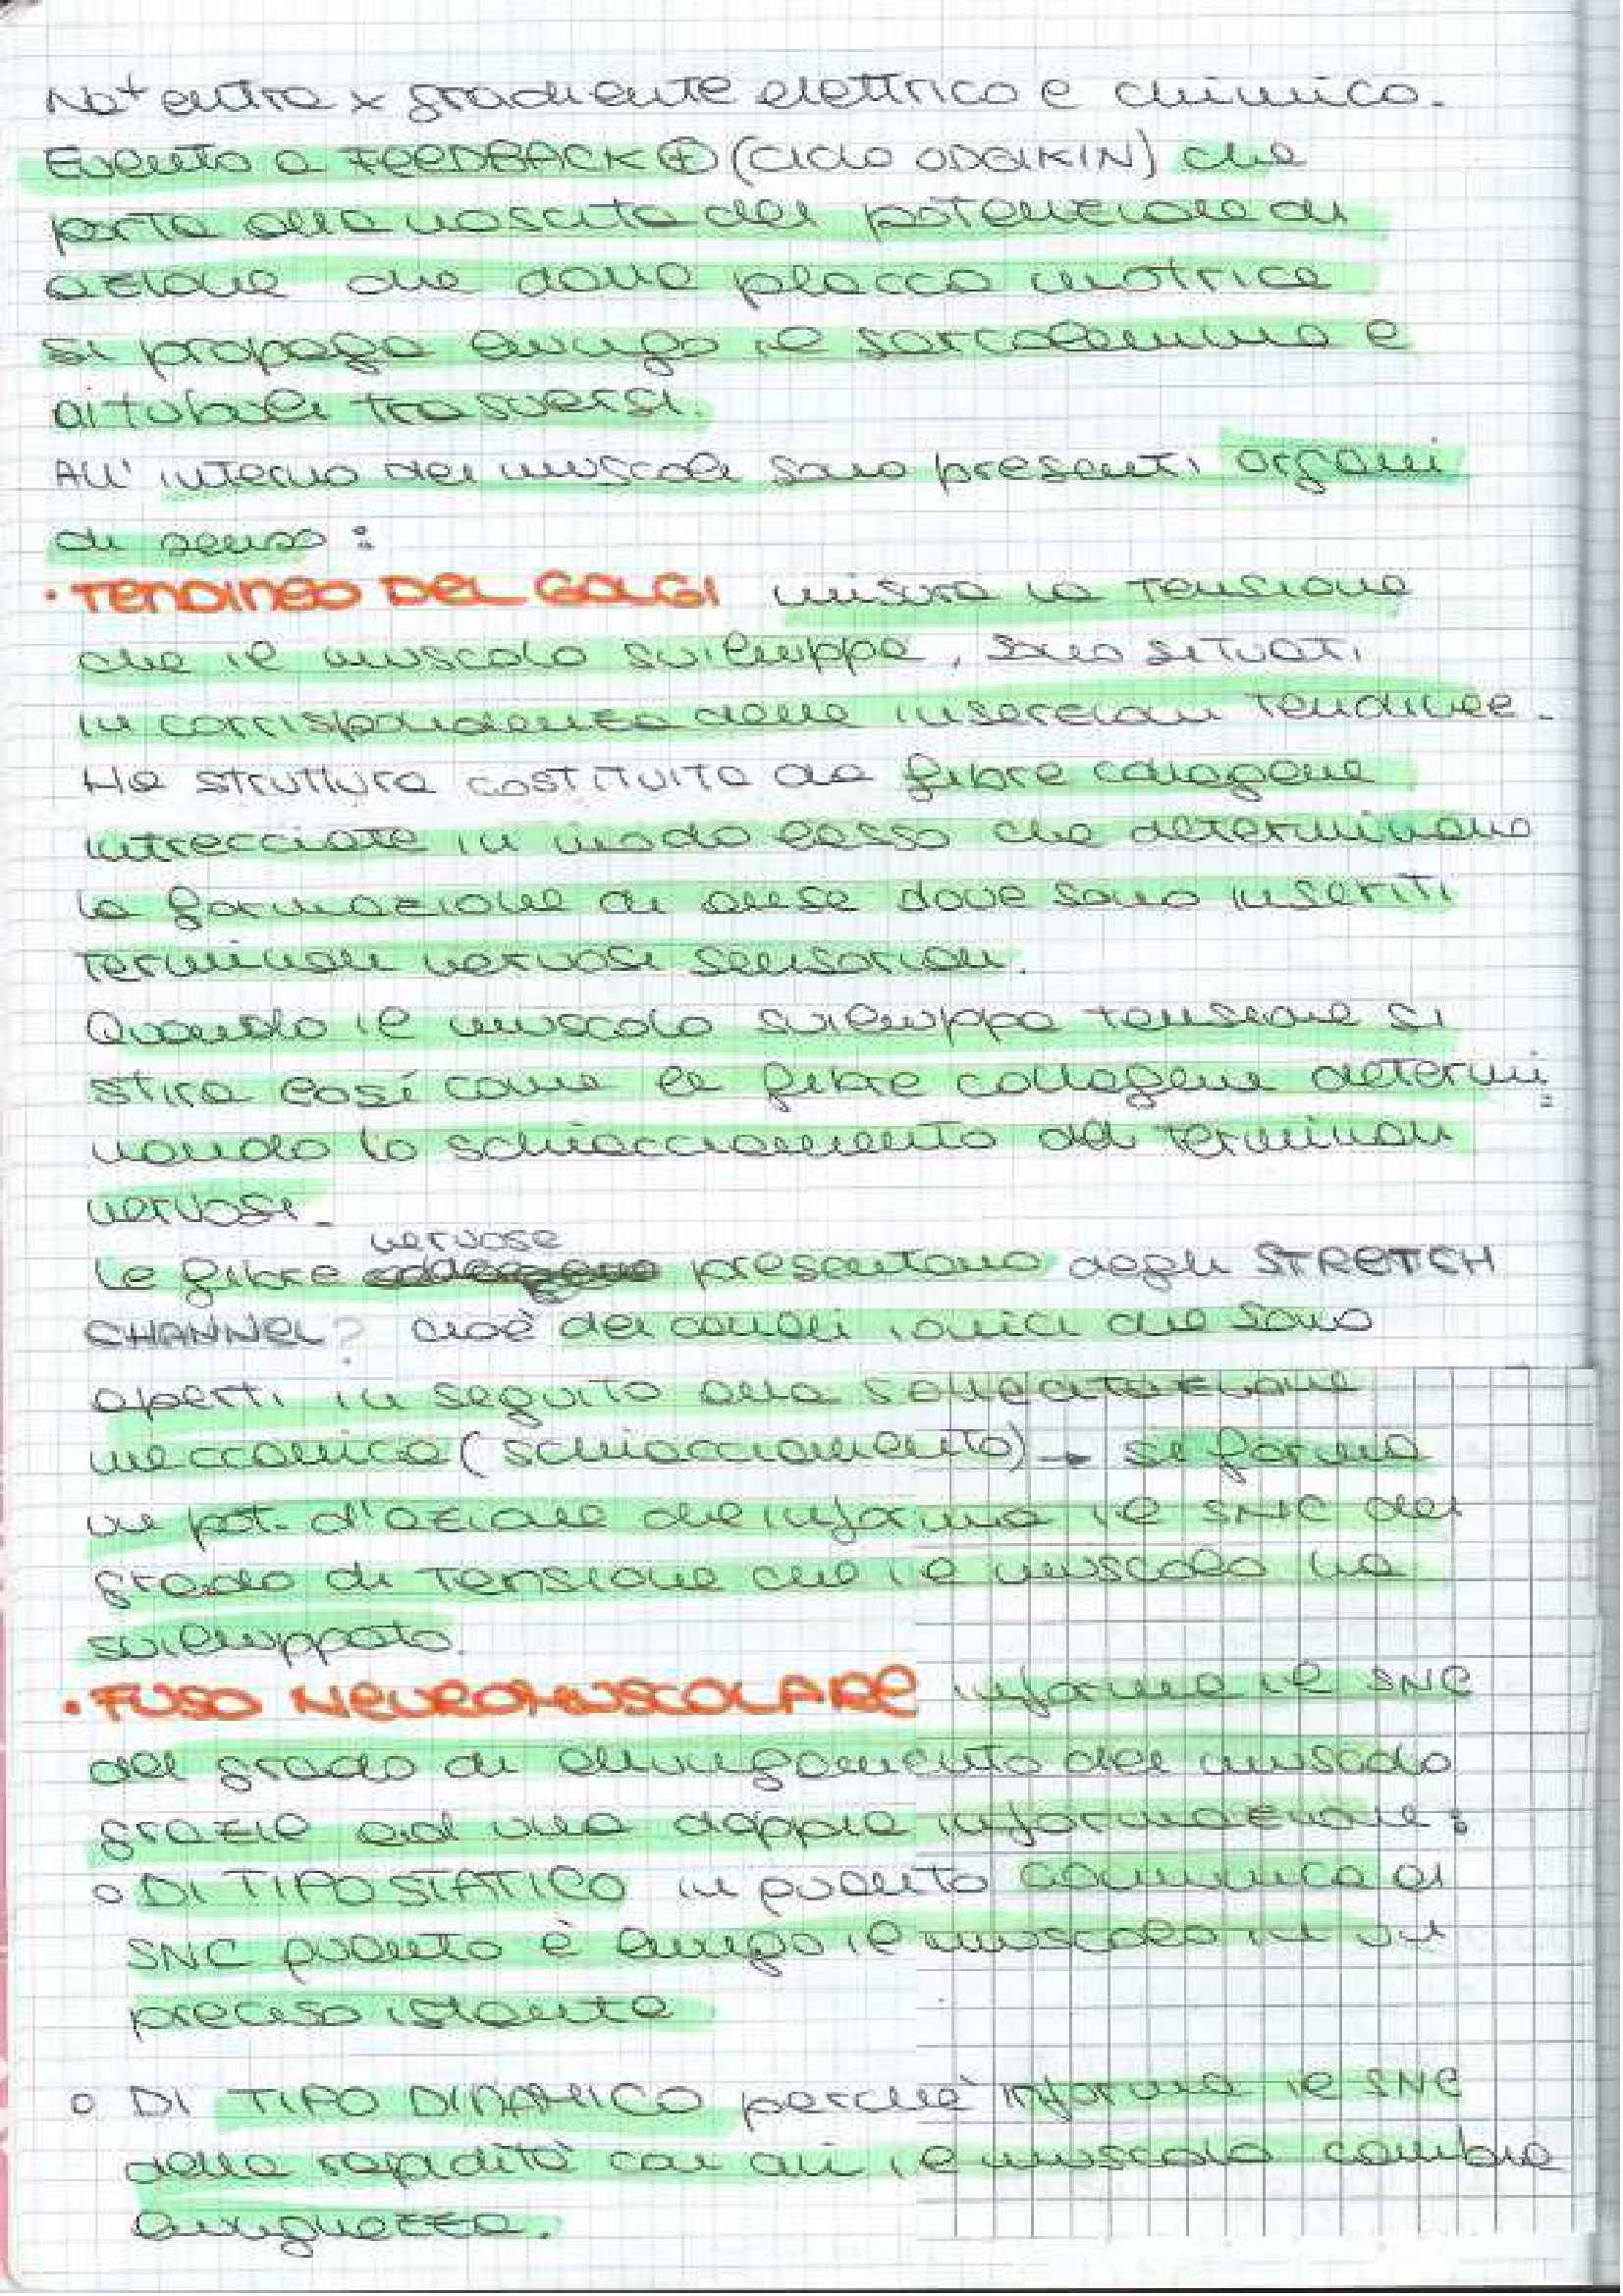 Na+ entra x gradiente elettrico e chimico.
Evento a FEEDBACK ⊕ (ciclo ODGKIN) che
porta alla nascita del potenziale di
azione che dalla placca motrice
si propaga lungo il sarcolemma e
ai tubuli trasversi.
All'interno dei muscoli sono presenti organi
di senso:
• TENDINEO DEL GOLGI misura la tensione
che il muscolo sviluppa, sono situati
in corrispondenza delle inserzioni tendinee.
Ha struttura costituita da fibre collagene
intrecciate in modo lasso che determinano
la formazione di anse dove sono inseriti
terminali nervosi sensoriali.
Quando il muscolo sviluppa tensione si
stira così come le fibre collagene determi=
nando lo schiacciamento dei terminali
nervosi.
nervose
Le fibre presentano degli STRETCH
CHANNEL? cioè dei canali ionici che sono
aperti in seguito alla sollecitazione
meccanica (schiacciamento) → si forma
un pot. d'azione che informa il SNC del
grado di tensione che il muscolo ha
sviluppato.
• FUSO NEUROMUSCOLARE informa il SNC
del grado di allungamento del muscolo
grazie ad una doppia informazione:
o DI TIPO STATICO in quanto comunica al
SNC quanto è lungo il muscolo in un
preciso istante
o DI TIPO DINAMICO perchè informa il SNC
della rapidità con cui il muscolo cambia
lunghezza.